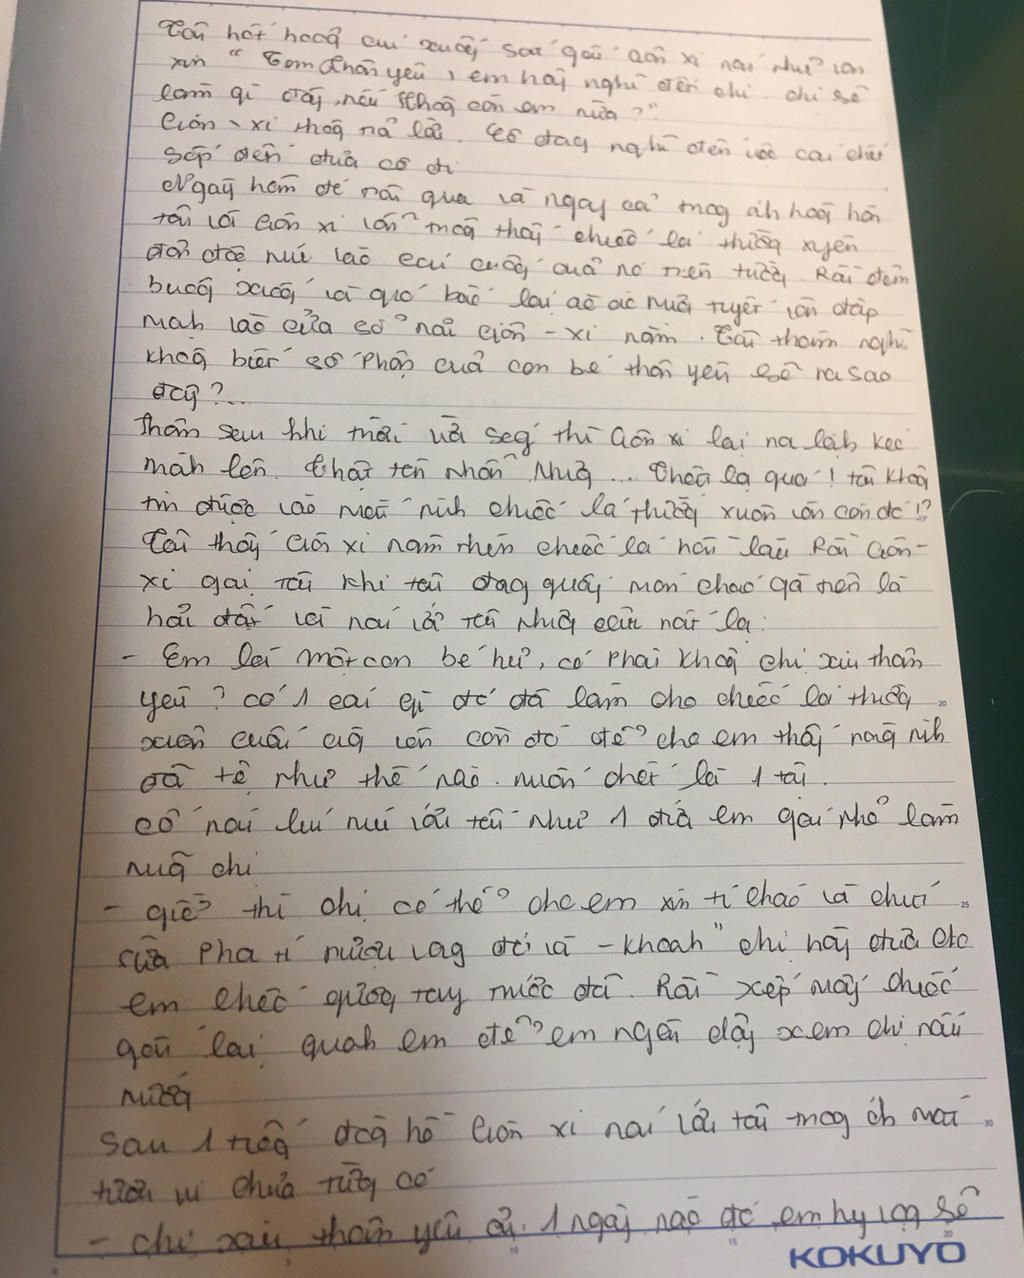 Tôi hốt hoảng cúi xuống sát gối Giôn xi nói như van
xin " Em thân yêu, em hãy nghĩ đến chị. chị sẽ
làm gì đây, nếu không còn em nữa?"
Giôn-xi không trả lời. Cô đang nghĩ đến việc cái chết
sắp đến đưa cô đi
Ngày hôm đó trôi qua và ngay cả trong ánh hoàng hôn
tôi và Giôn xi vẫn trông thấy chiếc lá thường xuyên
đơn độc níu vào cái cuống của nó trên tường. Rồi đêm
buông xuống và gió bấc lại ào ào mưa tuyết vẫn đập
mạnh vào cửa sổ nơi Giôn-xi nằm. Tôi thầm nghĩ
không biết số phận của con bé thân yêu sẽ ra sao
đây?...
Thầm sem khi trời vừa sáng thì Giôn xi lại ra lệnh kéo
mành lên. Thật tàn nhẫn. Nhưng ... Thật lạ quá! tôi không
tin được vào mắt mình chiếc lá thường xuân vẫn còn đó!?
Tôi thấy Giôn xi nằm nhìn chiếc lá hồi lâu Rồi Giôn-
xi gọi tôi khi tôi đang quấy món cháo gà trên lò
hơi đốt và nói với tôi những câu rất lạ:
- Em là một con bé hư, có phải không chị xiu thân
yêu? có 1 cái gì đó đã làm cho chiếc lá thường
xuân cuối cùng vẫn còn đó để cho em thấy rằng mình
đã tệ như thế nào. muốn chết là 1 tội.
cô nói líu ríu với tôi như 1 đứa em gái nhỏ làm
nũng chị
- giờ thì chị có thể cho em xin tí cháo và chút
sữa pha tí rượu vang đỏ và - khoan" chị hãy đưa cho
em chiếc gương tay trước đã. Rồi xếp mấy chiếc
gối lại quanh em để em ngồi dậy xem chị nấu
nướng
Sau 1 tiếng đồng hồ Giôn xi nói với tôi trong ánh mắt
tươi vui chưa từng có
- chị xiu thân yêu ơi. 1 ngày nào đó em hy vọng sẽ
KOKUYO